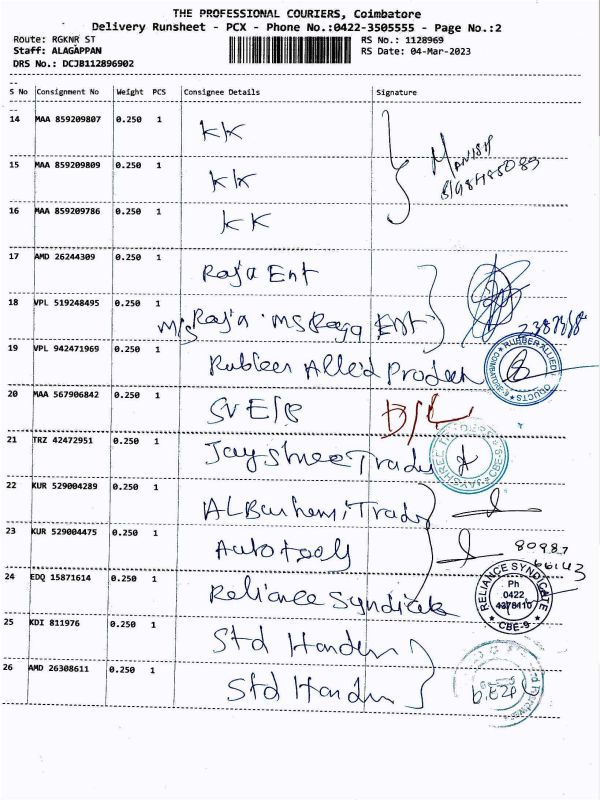 THE PROFESSIONAL COURIERS, Coimbatore
Delivery Runsheet - PCX - Phone No.:0422-3505555 - Page No.:2
Route: RGKNR ST
RS No.: 1128969
Staff: ALAGAPPAN
RS Date: 04-Mar-2023
DRS No.: DCJB112896902
S No Consignment No Weight PCS Consignee Details Signature
14 MAA 859209807 0.250 1 KK
MANISH
15 MAA 859209809 0.250 1 KK
16 MAA 859209786 0.250 1 KK
17 AMD 26244309 0.250 1 Raja Ent
18 VPL 519248495 0.250 1 M/s Raja
19 VPL 942471969 0.250 1 Rubber Allied
RUBBER ALLIED
20 MAA 567906842 0.250 1
21 TRZ 42472951 0.250 1 Jayshree Trade
CBE-9
22 KUR 529004289 0.250 1
23 KUR 529004475 0.250 1 Autotools
80987
24 EDQ 15871614 0.250 1 Reliance Syndicate
RELIANCE SYNDICATE
Ph
0422
4378410
CBE-9
25 KDI 811976 0.250 1 Std
26 AMD 26308611 0.250 1 Std